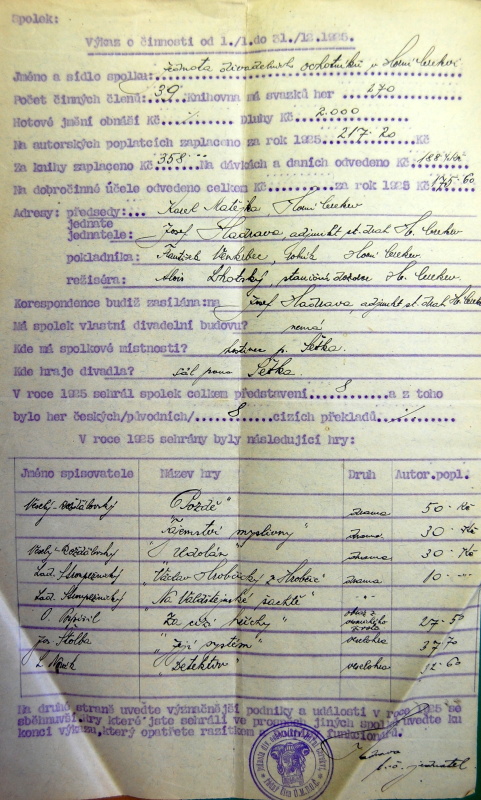 Spolek:
Výkaz o činnosti od 1./1.do 31./12.1925.
Jméno a sídlo spolku: Jednota divadelních ochotníků v Horní Cerekvi
Počet činných členů: 39 Knihovna má svazků her 270
Hotové jmění obnáší Kč % dluhy Kč 2.000
Na autorských poplatcích zaplaceno za rok 1925 217·20 Kč
Za knihy zaplaceno Kč 358 Na dávkách a daních odvedeno Kč
Na dobročinné účele odvedeno celkem Kč za rok 1925 Kč 175·60
Adresy: předsedy: Karel Matějka, Horní Cerekev
jednate
jednatele: Josef Hadrava, adjunkt st. drah H. Cerekev
pokladníka: František Horní Cerekev
režiséra: Alois Lhotský, staniční H. Cerekev
Korespondence budiž zasílána:na Josef Hadrava, adjunkt st. drah H. Cerekev
Má spolek vlastní divadelní budovu? nemá
Kde má spolkové místnosti? hostinec p. Petka.
Kde hraje divadla? sál pana Petka.
V roce 1925 sehrál spolek celkem představení 8 a z toho
bylo her českých/původních/ 8 cizích překladů %
V roce 1925 sehrány byly následující hry:
Jméno spisovatele Název hry Druh Autor.popl.
"Pozdě" drama 50 Kč
"Tajemství myslivny" drama 30 Kč
Udolán drama 30 Kč
Lad. Stroupežnický "Václav Hrobčický z Hrobčic" drama 10
Lad. Stroupežnický "Na Valdštejnské šachtě"
O. Pospíšil "Za cizí hříchy" obraz z života 27·50
Jos. Štolba "Její systém" veselohra 37·70
"Detektiv" veselohra 12·60
Na druhé straně uveďte význačnější podniky a události v roce 1925 se
sběhnuvší.Hry které jste sehráli ve prospěch jiných spolků uveďte ku
konci výkazu,který opatřete razítkem a funkcionářů.
Hadrava
jednatel